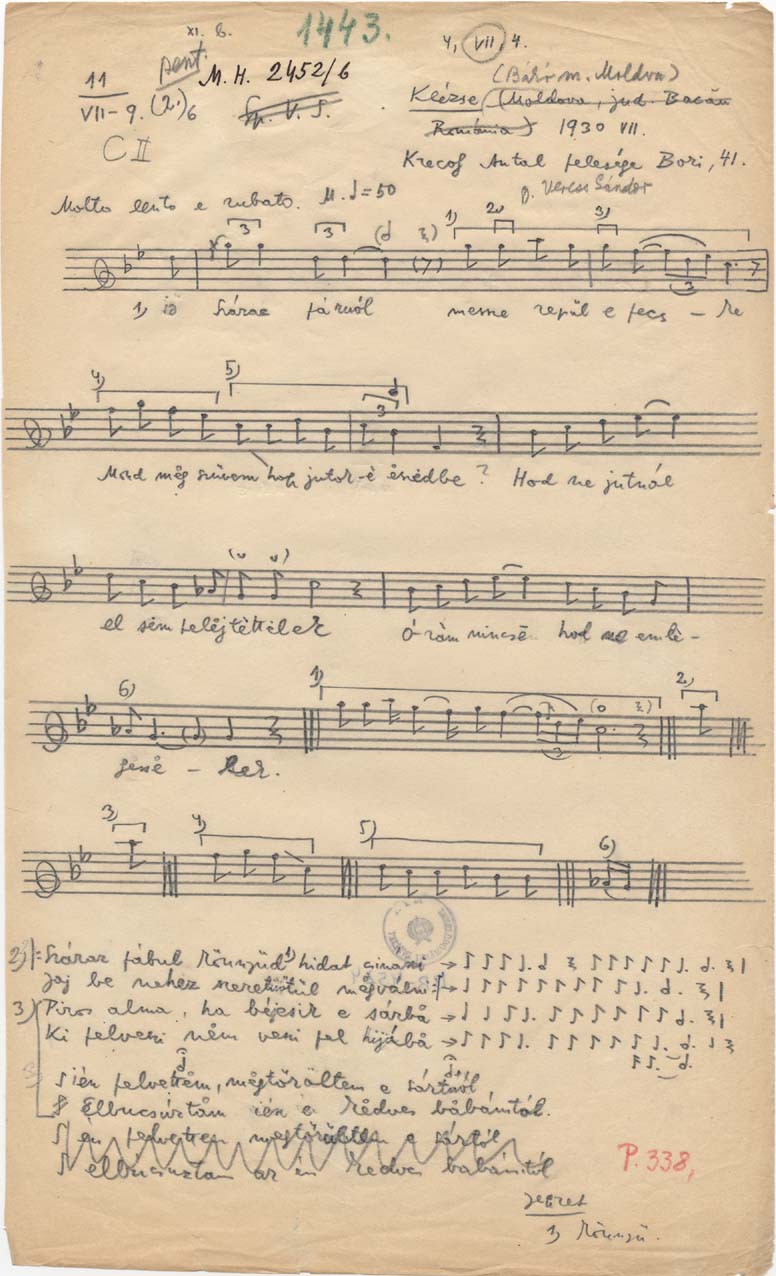 XI. B.
1443.
4, VII, 4.
pent.
11
VII-9. (2.)6
M. H. 2452/6
Sp. V. S.
(Bákó m. Moldva)
Klézse (Moldova, jud. Bacău
România) 1930 VII.
C II
Krecsf Antal felesége Bori, 41.
p. Veress Sándor
Molto lento e rubato. M. = 50
3 3 1) 2) 3) 3
1) Száraz fáruól messze repül e fecs - ke
4) 5) 3
Mond még szüvem hop jutok-é észédbe? Hod ne jutnál
el sém felejtéttélek Ó rám nincsé hod ne emlé-
6) 1) 2.) 3
gessé - lek.
3) 4) 5) 6)
2) Száraz fábul könnyüd 1) hidat cinani
Jaj be nahéz szeretüstül mégválni
3) Piros alma, ha béjesik e sárba
Ki felveszi ném veszi fel hijábå
ién felvettem, mégtörültem e sártuól
Elbucsúztåm ién e kedves båbámtól.
én felvettem megtörültem e sártól
elbucsuztam az én kedves babámtól
P. 338,
Jegyzet
1) Könnyü.